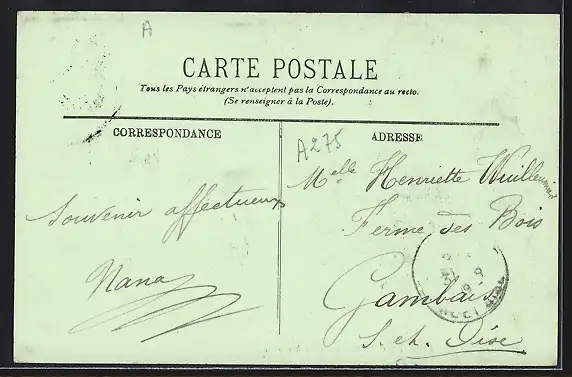 A
CARTE POSTALE
Tous les Pays étrangers n'acceptent pas la Correspondance au recto.
(Se renseigner à la Poste).
CORRESPONDANCE
ADRESSE
A275
Souvenir affectueux
Nana
Melle Henriette Wuilleumier
Ferme des Bois
Gambais
S. et. Oise